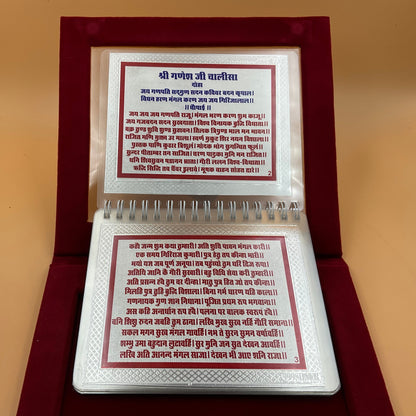 श्री गणेश जी चालीसा
दोहा
जय गणपति सदगुण सदन कविवर बदन कृपाल।
विघ्न हरण मंगल करण जय जय गिरिजालाल॥
॥ चौपाई ॥
जय जय जय गणपति राजू। मंगल भरण करण शुभ काजू॥
जय गजबदन सदन सुखदाता। विश्व विनायक बुद्धि विधाता॥
वक्र तुण्ड शुचि शुण्ड सुहावन। तिलक त्रिपुण्ड भाल मन भावन॥
राजित मणि मुक्तन उर माला। स्वर्ण मुकुट शिर नयन विशाला॥
पुस्तक पाणि कुठार त्रिशूलं। मोदक भोग सुगन्धित फूलं॥
सुन्दर पीताम्बर तन साजित। चरण पादुका मुनि मन राजित॥
धनि शिवसुवन षडानन भ्राता। गौरी ललन विश्व-विधाता॥
ऋद्धि सिद्धि तव चँवर डुलावे। मूषक वाहन सोहत द्वारे॥
2
कहौ जन्म शुभ कथा तुम्हारी। अति शुचि पावन मंगल कारी॥
एक समय गिरिराज कुमारी। पुत्र हेतु तप कीन्हा भारी॥
भयो यज्ञ जब पूर्ण अनूपा। तब पहुंच्यो तुम धरि द्विज रूपा॥
अतिथि जानि कै गौरी सुखारी। बहु विधि सेवा करी तुम्हारी॥
अति प्रसन्न ह्वै तुम वर दीन्हा। मातु पुत्र हित जो तप कीन्हा॥
मिलहि पुत्र तुहि बुद्धि विशाला। बिना गर्भ धारण यहि काला॥
गणनायक गुण ज्ञान निधाना। पूजित प्रथम रूप भगवाना॥
अस कहि अन्तर्धान रूप ह्वै। पलना पर बालक स्वरूप ह्वै॥
बनि शिशु रुदन जबहि तुम ठाना। लखि मुख सुख नहिं गौरी समाना॥
सकल मगन सुख मंगल गावहिं। नभ ते सुरन सुमन वर्षावहिं॥
शम्भु उमा बहुदान लुटावहिं। सुर मुनि जन सुत देखन आवहिं॥
लखि अति आनन्द मंगल साजा। देखन भी आए शनि राजा॥
3